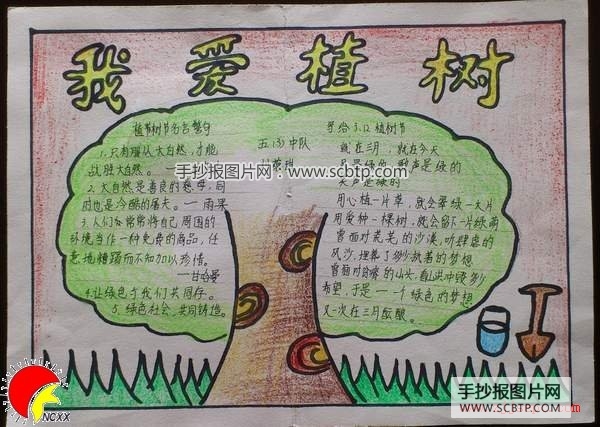 我爱植树
植树节名言警句
1.只有顺从大自然,才能
战胜大自然。
2.大自然是善良的慈母,同
时也是冷酷的屠夫。——雨果
3.人们常常将自己周围的
环境当作一种免费的商品,任
意地糟蹋而不知加以珍惜。
——甘哈曼
4.让绿色与我们共同存。
5.绿色社会,共同铸造。
五(3)中队
写给3.12植树节
就在三月,就在今天
风是绿的 歌声是绿的
笑声是绿的
用心植一片草,就会翠绿一大片
用爱种一棵树,就会留下一片绿荫
曾面对荒芜的沙漠,听肆虐的
风沙,埋葬了多少执着的梦想
曾面对贫瘠的山头,看山洪冲毁多少
希望,于是一个绿色的梦想
又一次在三月酝酿。
手抄报图片网:www.scbtp.com
手抄报图片网
WWW.SCBTP.COM
NCXX